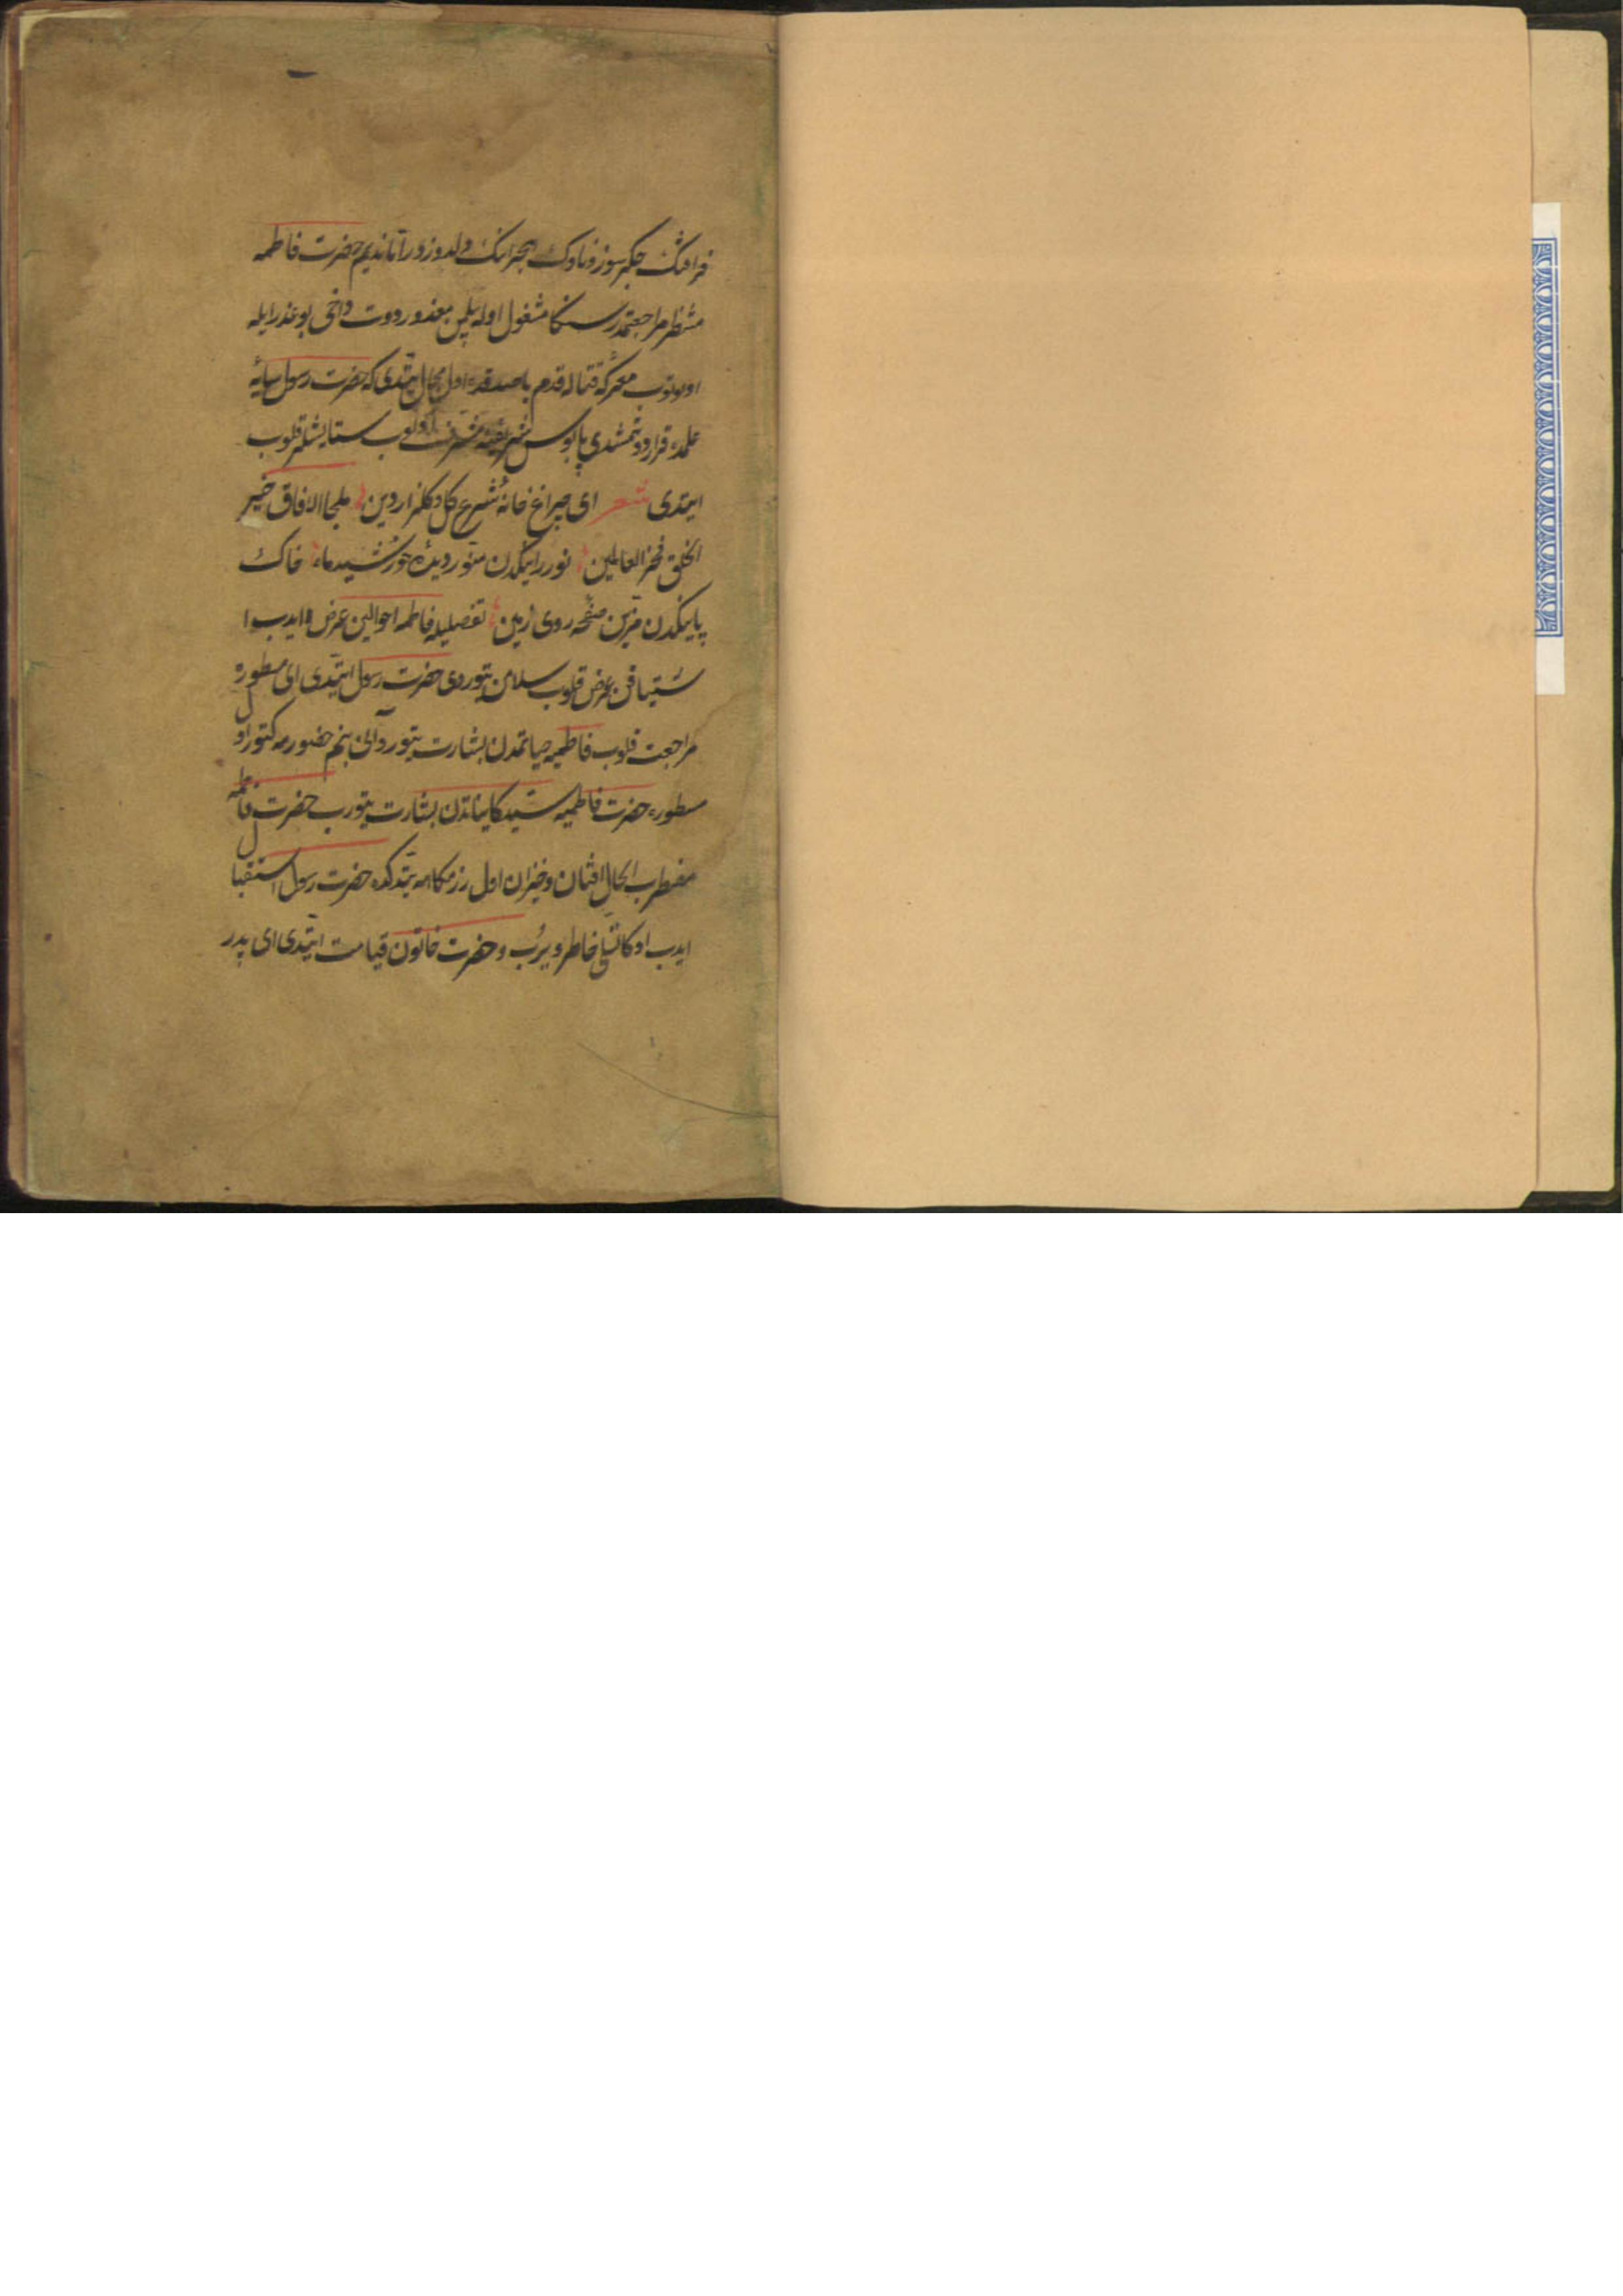 فراقنگ جگرسوز و ناوک هجرانک دلدوزدر آتا ندیم حضرت فاطمه
منتظر مراجعتمدر سنکا مشغول اوله بیلمن معذور دوت داخی بو عذر ایله
اونوتوب معرکه قتاله قدم باصدقده اول محال یتدی که حضرت رسول سایهٔ
علمده قرار دوتمشدی پابوس شریفینه مشرف اولوب ستایشلر قلوب
ایتدی شعر ای چراغ خانهٔ شرع کل گلزار دین ملجا الافاق خیر
الخلق فخر العالمین نور رایکدن منور دیدهٔ خورشید و ماه خاک
پایکدن مزین صفحه روی زمین تفصیلیه فاطمه احوالین عرض ایدب ا
شتیاقن عرض قلوب سلامن یتوردی حضرت رسول ایتدی ای سطوره
مراجعت قلوب فاطمیه حیاتمدن بشارت یتور و آنی بنم حضورمه کتور اول
سطوره حضرت فاطمیه سید کایناتدن بشارت یتورب حضرت فاطمه
مضطرب الحال افتان و خیزان اول رزمکاهه یتدکده حضرت رسول استقبال
ایدب اوکا تسلی خاطر ویرب و حضرت خاتون قیامت ایتدی ای پدر